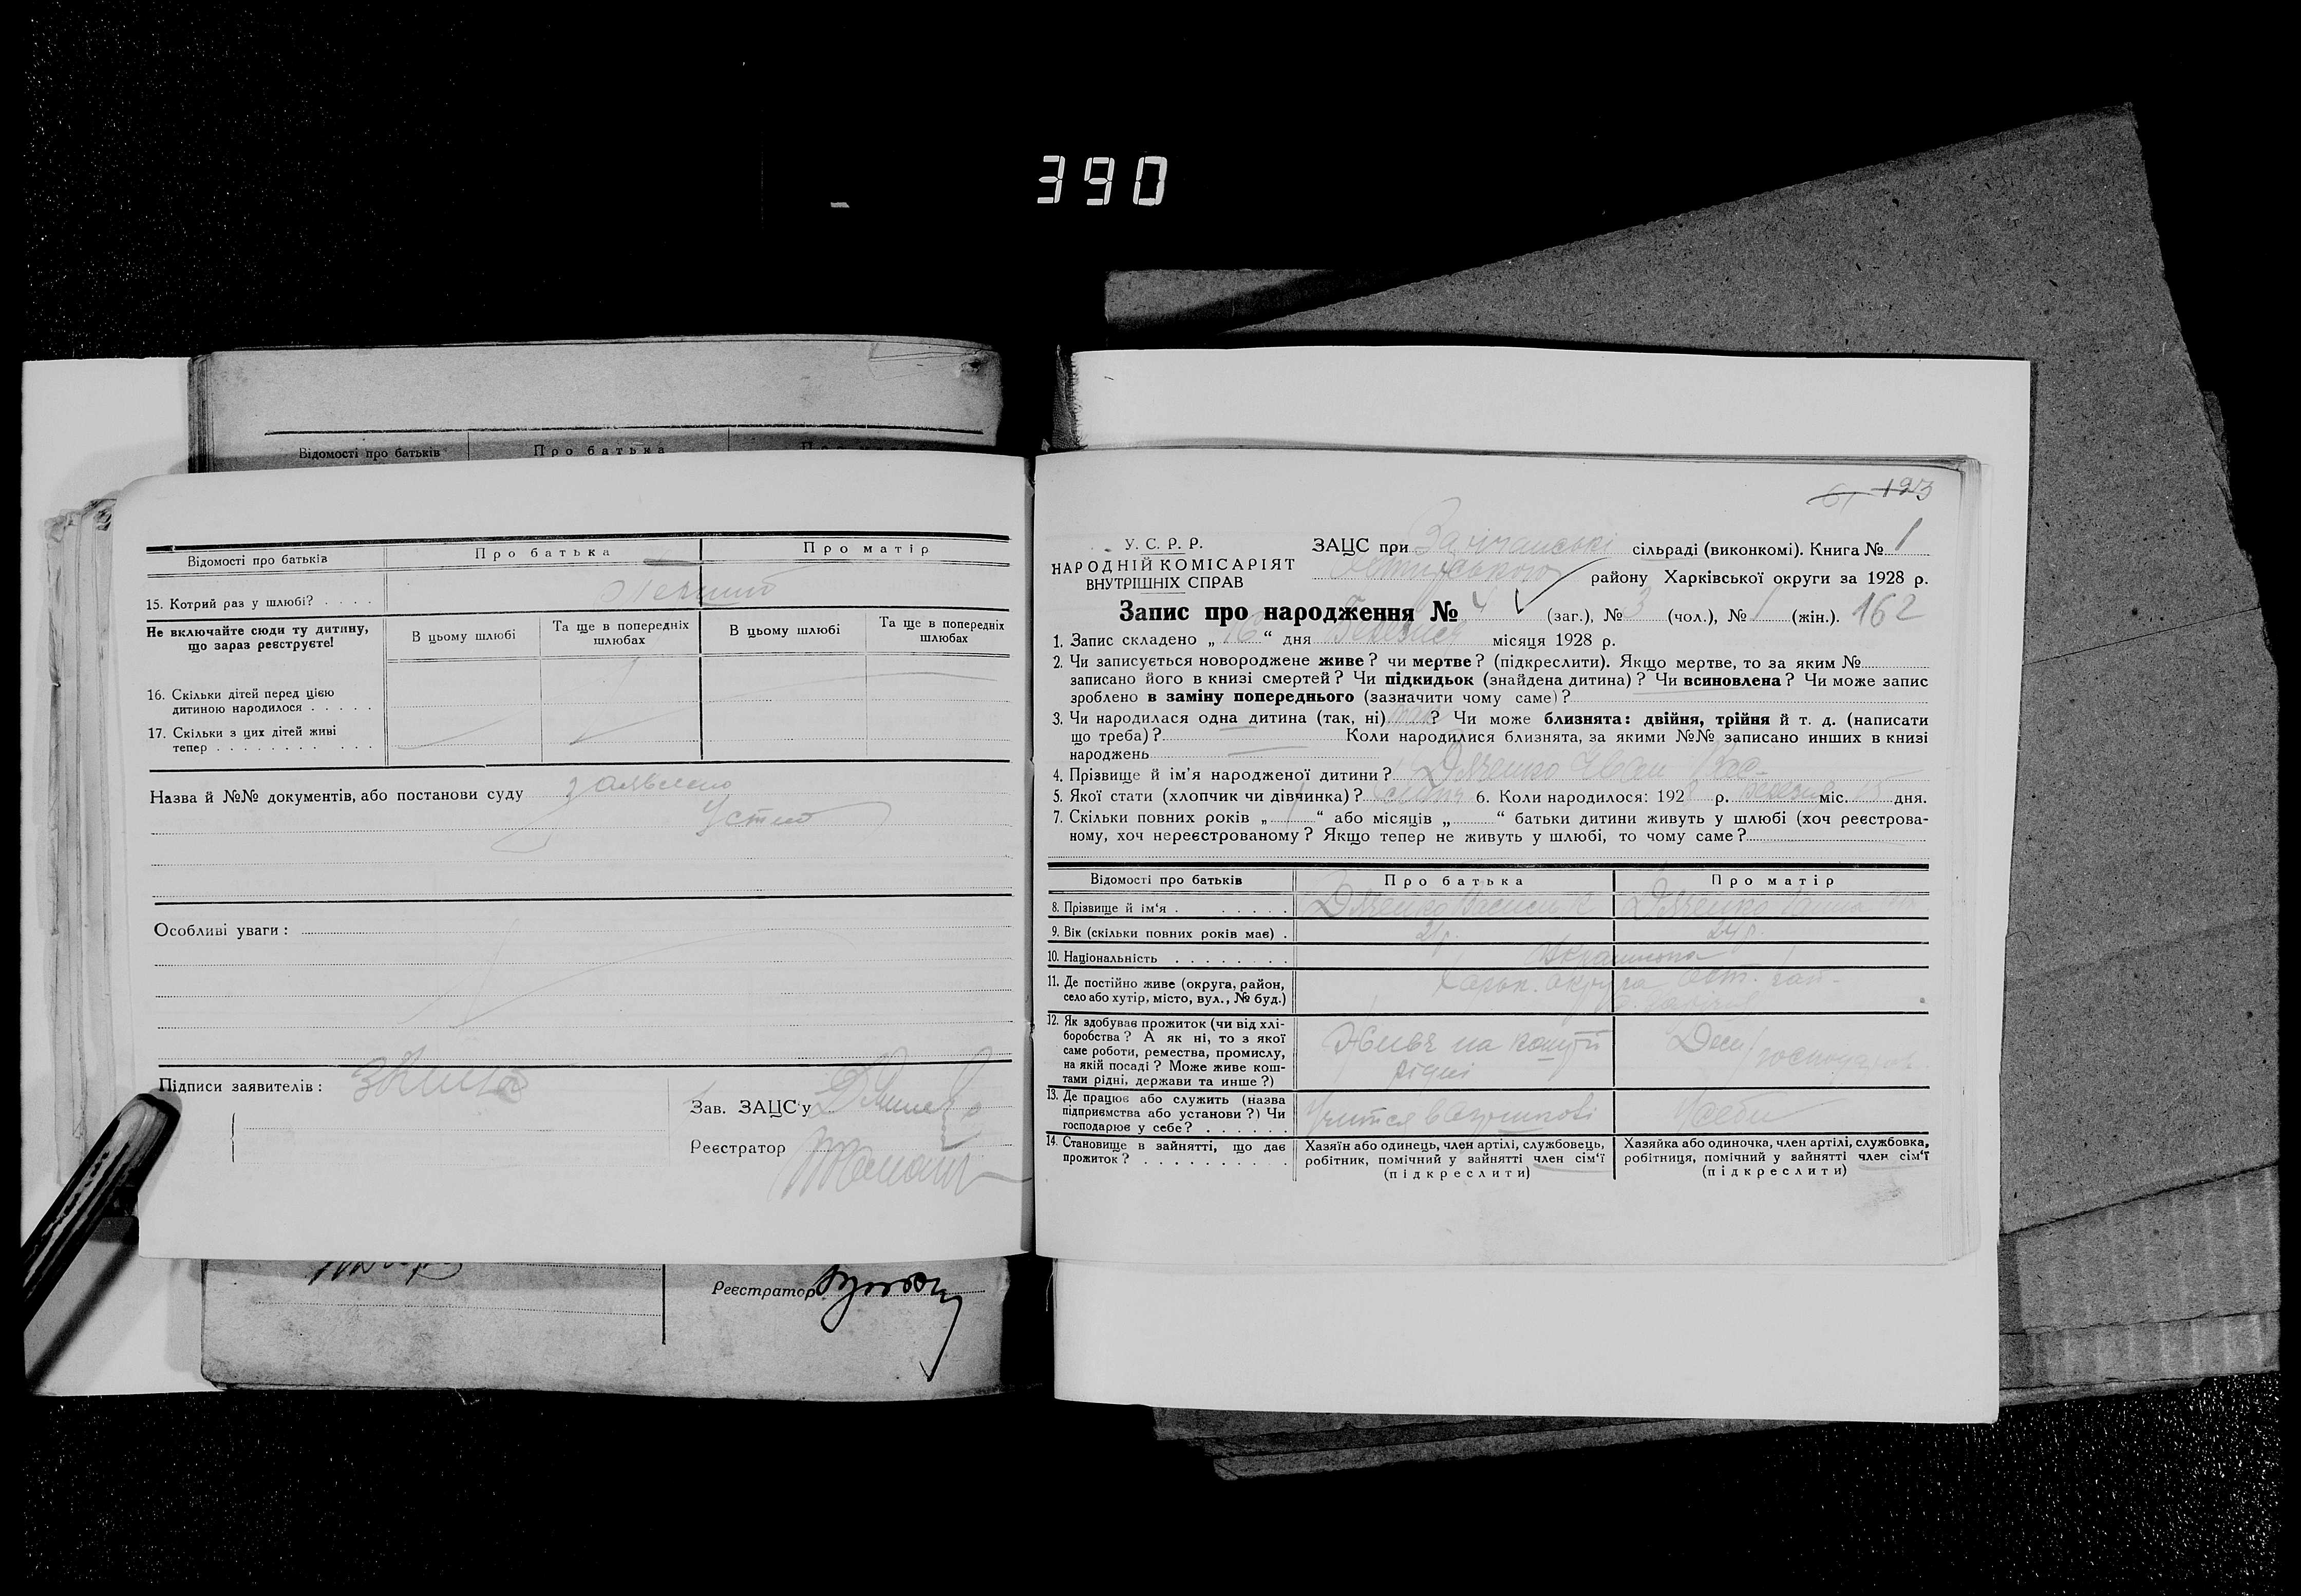 390
Відомості про батьків
Про батька
Відомості про батьків
Про батька
Про матір
15. Котрий раз у шлюбі? . . . .
Не включайте сюди ту дитину, що зараз реєструєте!
В цьому шлюбі
Та ще в попередніх шлюбах
В цьому шлюбі
Та ще в попередніх шлюбах
16. Скільки дітей перед цією
дитиною народилося . . . . .
17. Скільки з цих дітей живі
тепер . . . . . . . . . . .
Назва й №№ документів, або постанови суду заявлено
Устно
Особливі уваги:
Підписи заявителів:
Зав. ЗАЦС'у
Реєстратор
Реєстратор
123
У. С. Р. Р.
НАРОДНІЙ КОМІСАРІЯТ
ВНУТРІШНІХ СПРАВ
ЗАЦС при сільраді (виконкомі). Книга № 1
району Харківської округи за 1928 р.
Запис про народження № 4 (заг.), № 3 (чол.), № 1 (жін.). 162
1. Запис складено „16“ дня Березня місяця 1928 р.
2. Чи записується новороджене живе? чи мертве? (підкреслити). Якщо мертве, то за яким №
записано його в книзі смертей? Чи підкидьок (знайдена дитина)? Чи всиновлена? Чи може запис
зроблено в заміну попереднього (зазначити чому саме)?
3. Чи народилася одна дитина (так, ні) так? Чи може близнята: двійня, трійня й т. д. (написати
що треба)? Коли народилися близнята, за якими №№ записано инших в книзі
народжень
4. Прізвище й ім'я народженої дитини? Дяченко Іван Вас
5. Якої стати (хлопчик чи дівчинка)? 6. Коли народилося: 1928 р. Березня міс. 15 дня.
7. Скільки повних років „ “ або місяців „ “ батьки дитини живуть у шлюбі (хоч реєстрова-
ному, хоч нереєстрованому? Якщо тепер не живуть у шлюбі, то чому саме?
Відомості про батьків
Про батька
Про матір
8. Прізвище й ім'я . . . . . . .
Дяченко Василь
Дяченко
9. Вік (скільки повних років має) .
21 р.
10. Національність . . . . . . . .
11. Де постійно живе (округа, район,
село або хутір, місто, вул., № буд.)
Харьк. округа
12. Як здобуває прожиток (чи від хлі-
боробства? А як ні, то з якої
саме роботи, ремества, промислу,
на якій посаді? Може живе кош-
тами рідні, держави та инше?)
Живе на кошти
рідні
13. Де працює або служить (назва
підприємства або установи?) Чи
господарює у себе? . . . . . .
14. Становище в зайнятті, що дає
прожиток? . . . . . . . . . .
Хазяїн або одинець, член артілі, службовець,
робітник, помічний у зайнятті член сім'ї
(підкреслити)
Хазяйка або одиночка, член артілі, службовка,
робітниця, помічний у зайнятті член сім'ї
(підкреслити)